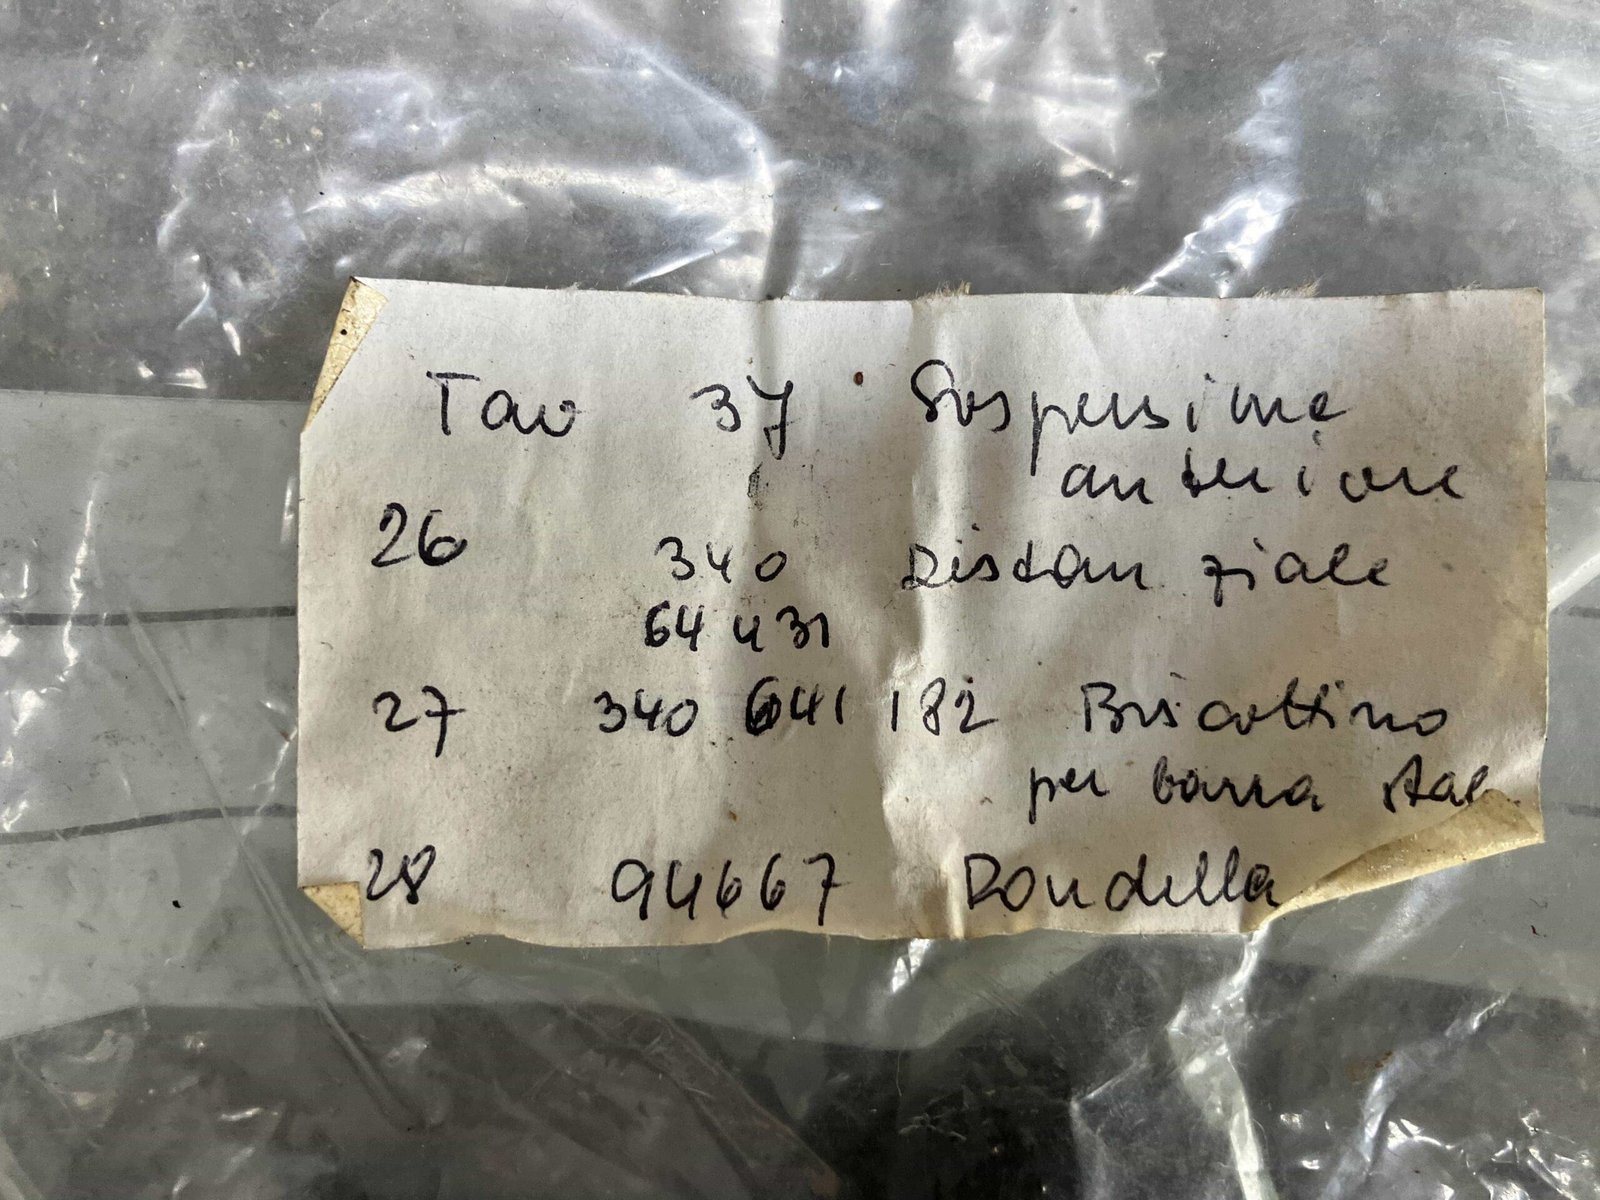 Tav 37 Sospensione
anteriore
26 340 Distanziale
64 431
27 340 641 182 Biscottino
per barra stab
28 94667 Rondella